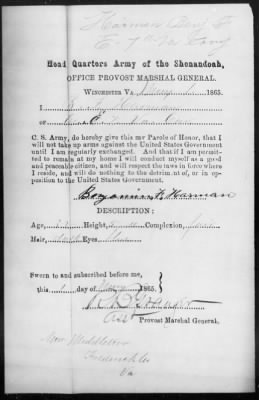 Harman Benj F
C 7th Va Cavy
Head Quarters Army of the Shenandoah,
OFFICE PROVOST MARSHAL GENERAL.
WINCHESTER VA. 1865.
I
of C
C. S. Army, do hereby give this my Parole of Honor, that I
will not take up arms against the United States Government
until I am regularly exchanged. And that if I am permit-
ted to remain at my home I will conduct myself as a good
and peaceable citizen, and will respect the laws in force where
I reside, and will do nothing to the detriment of, or in op-
position to the United States Government.
Benjamin F. Harman
DESCRIPTION:
Age, Height, Complexion,
Hair, Eyes
Sworn to and subscribed before me,
this day of 1865.
Provost Marshal General.
Near Middletown
Frederick Co
Va